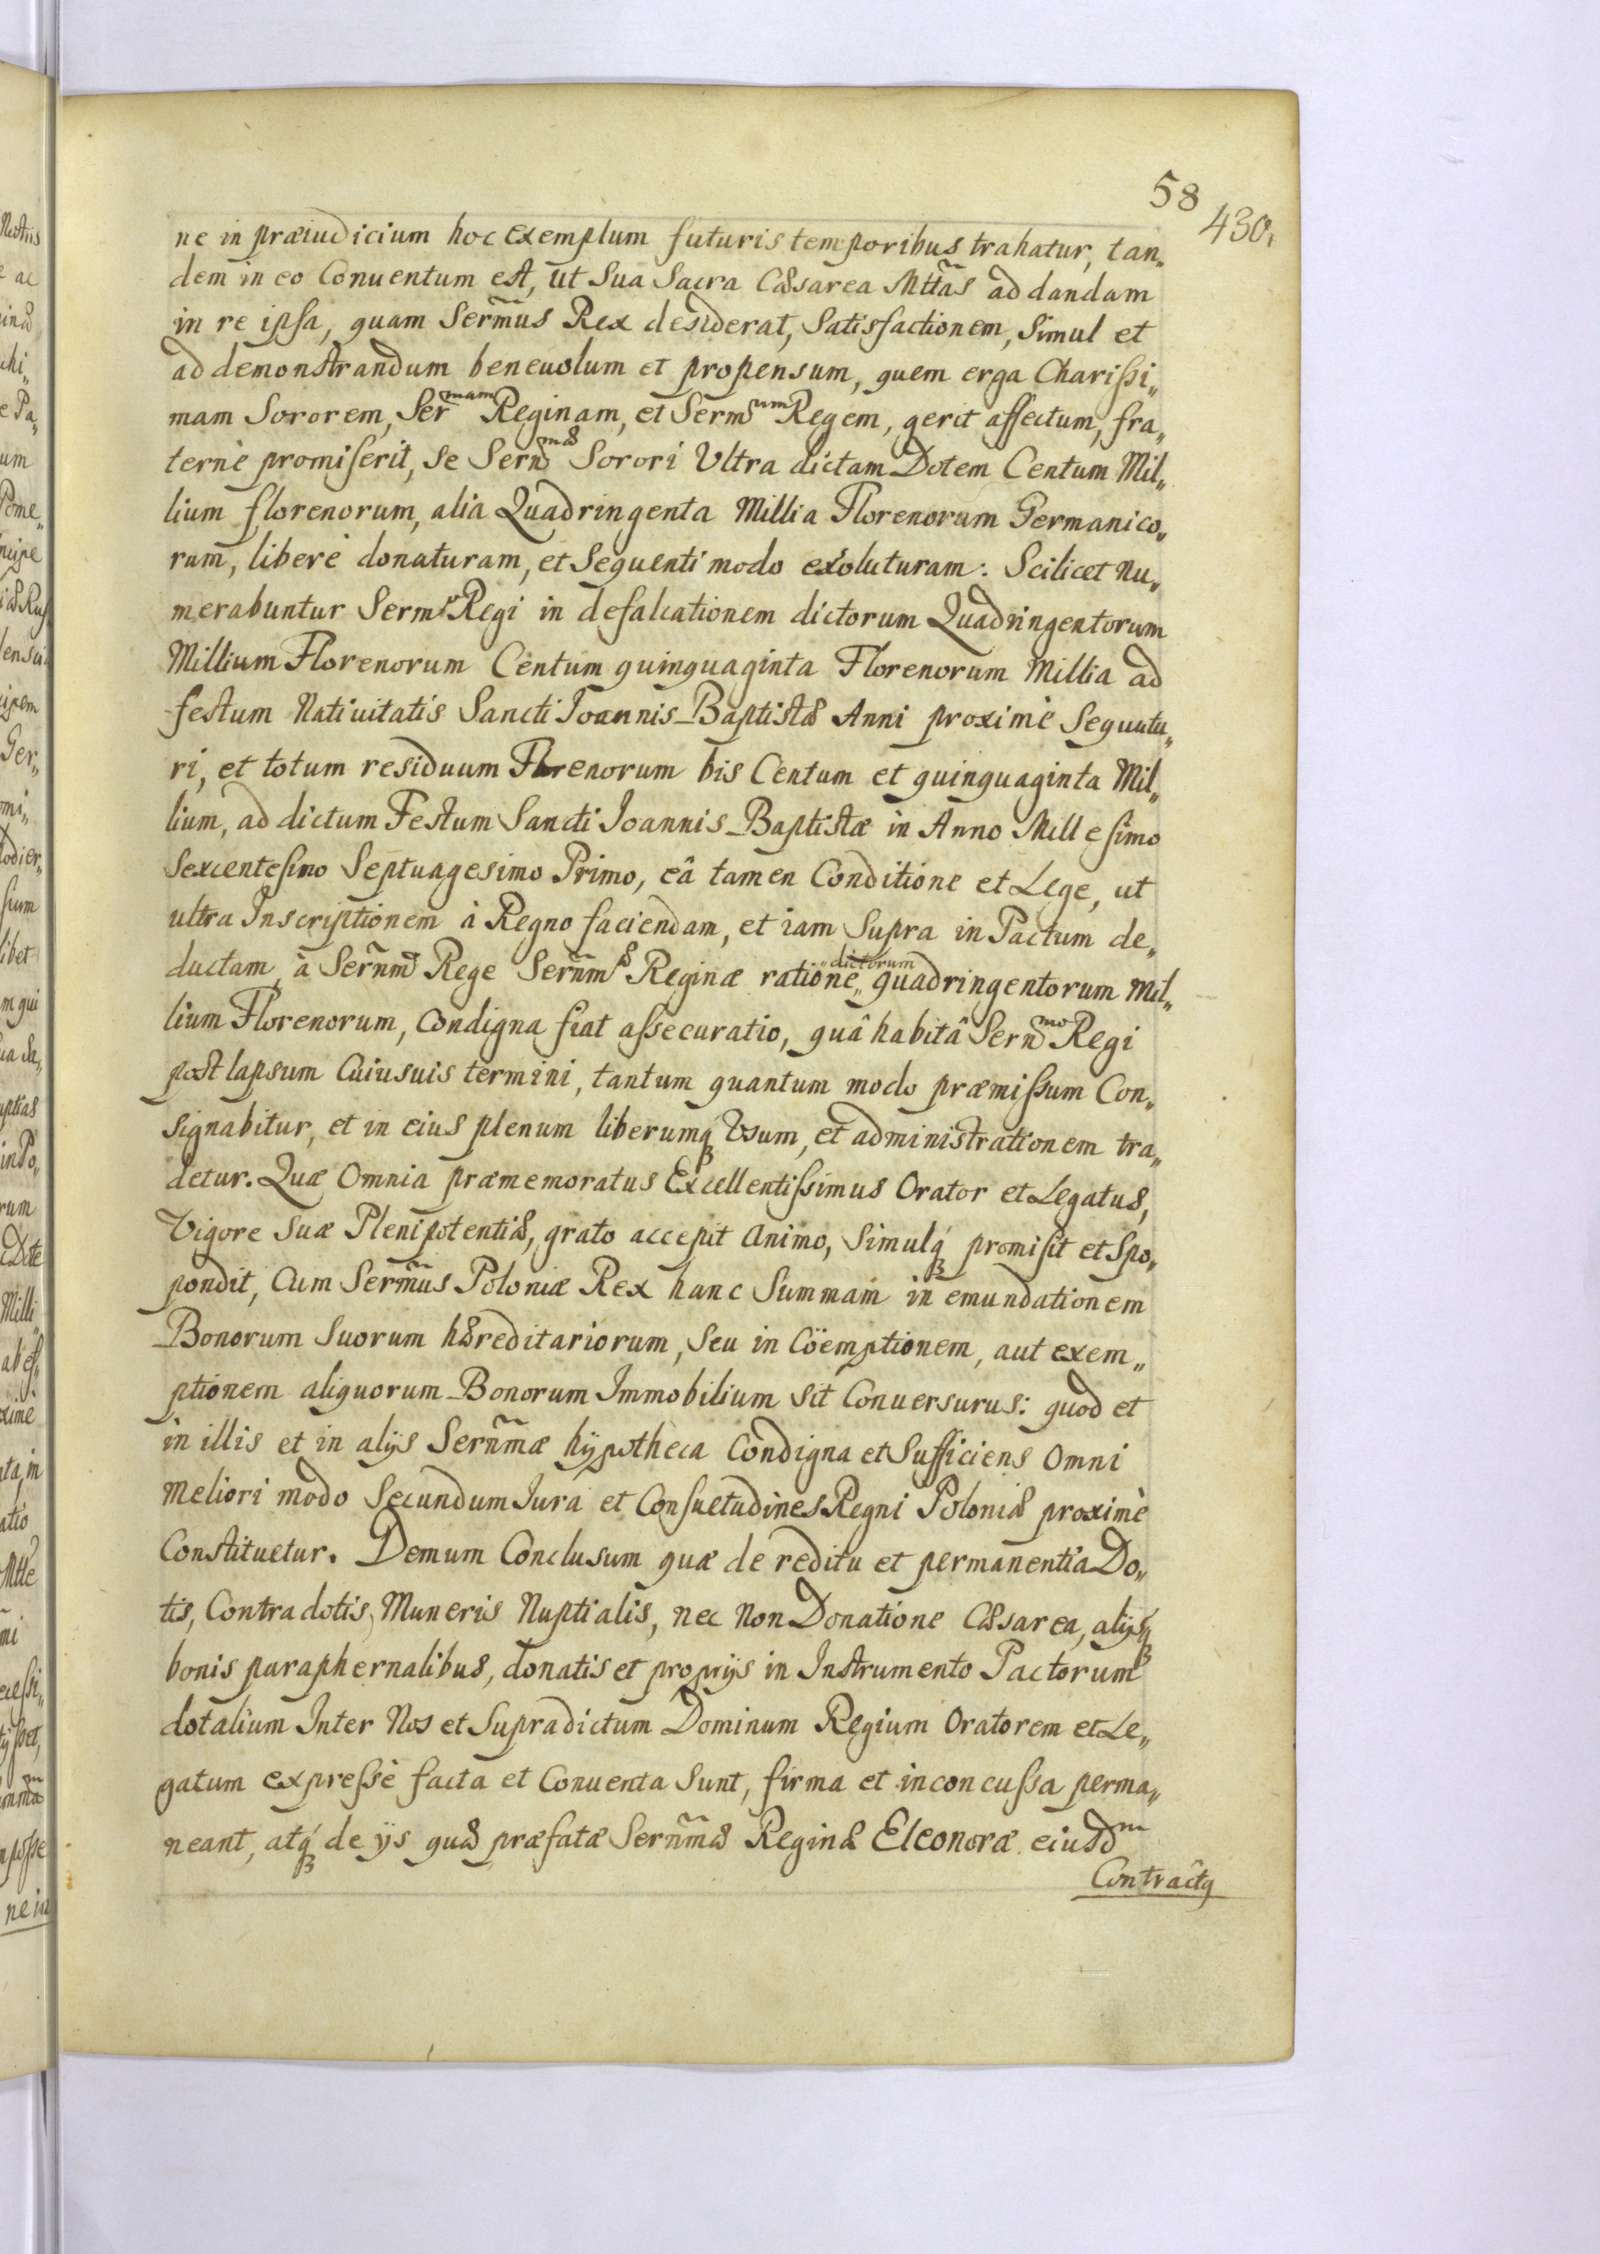 58
430.
ne in præiudicium hoc Exemplum futuris temporibus trahatur, tan„
dem in eo Conuentum est, ut Sua Sacra Cæsarea Mttãs ad dandam
in re ipsa, quam Serm̃us Rex desiderat, Satisfactionem, Simul et
ad demonstrandum beneuolum et propensum, quem erga Charissi„
mam Sororem, Ser^mam Reginam, et Serms^um Regem, gerit affectum, fra„
ternè promiserit, se Sern^mæ Sorori Ultra dictam Dotem Centum Mil„
lium florenorum, alia Quadringenta Millia Florenorum Germanico„
rum, liberè donaturam, et Sequenti modo exoluturam: Scilicet Nu„
merabuntur Serm^o Regi in defalcationem dictorum Quadringentorum
Millium Florenorum Centum quinquaginta Florenorum Millia ad
festum Natiuitatis Sancti Joannis Baptistæ Anni proximè Sequutu„
ri, et totum residuum Florenorum bis Centum et quinquaginta Mil„
lium, ad dictum Festum Sancti Joannis Baptistæ in Anno Millesimo
Sexcentesimo Septuagesimo Primo, eâ tamen Conditione et Lege, ut
ultra Inscriptionem à Regno faciendam, et iam Supra in Pactum de„
ductam, à Serñm^o Rege Serñm^æ Reginæ ratione „dictorum„ quadringentorum Mil„
lium Florenorum, Condigna fiat assecuratio, quâ habitâ Sern^mo Regi
post lapsum Cuiusuis termini, tantum quantum modo præmissum Con„
signabitur, et in eius plenum liberumq́ Vsum, et administrationem tra„
detur. Quæ Omnia præmemoratus Excellentissimus Orator et Legatus,
Vigore Suæ Plenipotentiæ, grato accepit Animo, Simulq́ promisit et Spo„
pondit, Cum Serm̃us Poloniæ Rex hanc Summam in emundationem
Bonorum Suorum hæreditariorum, Seu in Cöemptionem, aut exem„
ptionem aliquorum Bonorum Immobilium sit Conuersurus: quod et
in illis et in alijs Serñmæ hÿpotheca Condigna et Sufficiens Omni
Meliori modo Secundum Jura et Consuetudines Regni Poloniæ proximè
Constituetur. Demum Conclusum quæ de reditu et permanentia Do„
tis, Contradotis, Muneris Nuptialis, nec Non Donatione Cæsarea, alijsq́
bonis paraphernalibus, donatis et proprijs in Instrumento Pactorum
dotalium Inter Nos et Supradictum Dominum Regium Oratorem et Le„
gatum expressè facta et Conuenta Sunt, firma et inconcussa perma„
neant, atq́ de ijs quæ præfatæ Serñmæ Reginæ Eleonoræ eiusd^m
Contractq